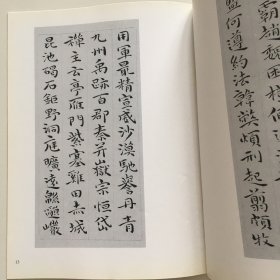 霸趙魏困橫
盟何遵約法韓弊煩刑起翦頗牧
用軍最精宣威沙漠馳譽丹青
九州禹跡百郡秦并嶽宗恒岱
禪主云亭雁門紫塞雞田赤城
昆池碣石鉅野洞庭曠遠緜邈巖